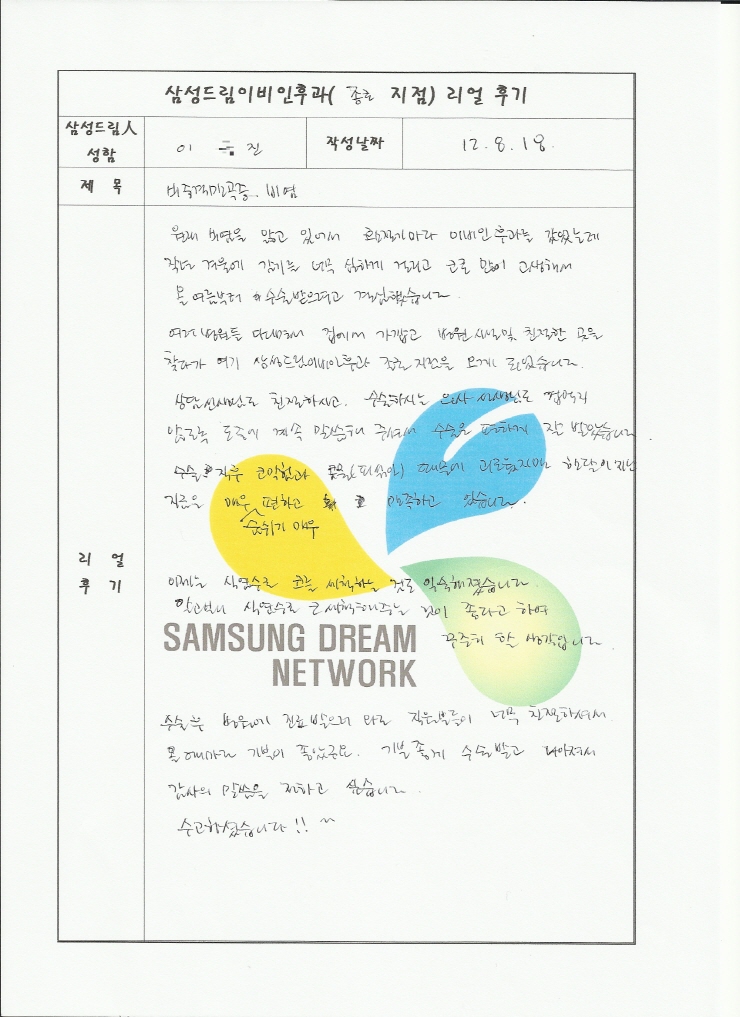 삼성드림이비인후과( 종로 지점) 리얼 후기
삼성드림人 성함
이 진
작성날짜
12. 8. 18.
제 목
비중격만곡증. 비염
리 얼 후 기
원래 비염을 앓고 있어서 환절기마다 이비인후과를 갔었는데
작년 겨울에 감기를 너무 심하게 걸리고 코로 많이 고생해서
올 여름부터 수술받으려고 결심했습니다.
여러 병원들 다녀봐서 집에서 가깝고 병원 시설및 친절한 곳을
찾다가 여기 삼성드림이비인후과 종로지점을 오게 되었습니다.
상담선생님도 친절하시고. 수술하시는 의사 선생님도 겁먹지
않도록 도중에 계속 말씀해 주셔서 수술을 편하게 잘 받았습니다
수술 직후 코막힘과 콧물(피섞인) 때문에 괴로웠지만 한달이 지난
지금은 매우 편하고 만족하고 있습니다.
숨쉬기 매우
이제는 식염수로 코를 세척하는 것도 익숙해졌습니다.
알고보니 식염수로 코세척해주는 것이 좋다고 하여
꾸준히 할 생각입니다
SAMSUNG DREAM
NETWORK
수술후 병원에 진료받으러 와도 직원분들이 너무 친절하셔서
올때마다 기분이 좋았구요. 기분좋게 수술받고 나아져서
감사의 말씀을 전하고 싶습니다.
수고하셨습니다!! ~